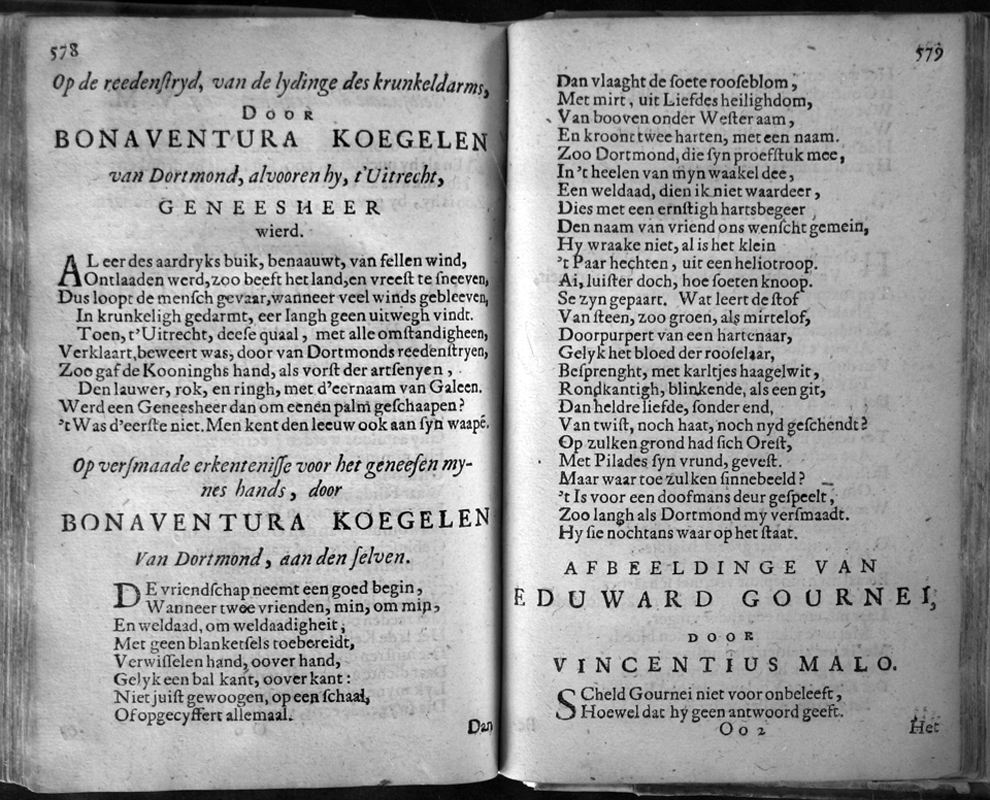 578
Op de reedenſtryd, van de lydinge des krunkeldarms,
DOOR
BONAVENTURA KOEGELEN
van Dortmond, alvooren hy, t'Uitrecht,
GENEESHEER
wierd.
AL eer des aardryks buik, benaauwt, van fellen wind,
Ontlaaden werd, zoo beeft het land, en vreeſt te ſneeven,
Dus loopt de menſch gevaar, wanneer veel winds gebleeven,
In krunkeligh gedarmt, eer langh geen uitwegh vindt.
Toen, t'Uitrecht, deeſe quaal, met alle omſtandigheen,
Verklaart, beweert was, door van Dortmonds reedenſtryen,
Zoo gaf de Kooninghs hand, als vorſt der artſenyen,
Den lauwer, rok, en ringh, met d'eernaam van Galeen.
Werd een Geneesheer dan om eenen palm geſchaapen?
't Was d'eerſte niet. Men kent den leeuw ook aan ſyn waapē.
Op verſmaade erkenteniſſe voor het geneeſen my-
nes hands, door
BONAVENTURA KOEGELEN
Van Dortmond, aan den ſelven.
DE vriendſchap neemt een goed begin,
Wanneer twee vrienden, min, om min,
En weldaad, om weldaadigheit,
Met geen blanketſels toebereidt,
Verwiſſelen hand, oover hand,
Gelyk een bal kant, oover kant:
Niet juiſt gewoogen, op een ſchaal,
Of opgecyffert allemaal.
Dan
579
Dan vlaaght de ſoete rooſeblom,
Met mirt, uit Liefdes heilighdom,
Van booven onder Weſter aam,
En kroont twee harten, met een naam.
Zoo Dortmond, die ſyn proefſtuk mee,
In 't heelen van myn waakel dee,
Een weldaad, dien ik niet waardeer,
Dies met een ernſtigh hartsbegeer
Den naam van vriend ons wenſcht gemein,
Hy wraake niet, al is het klein
't Paar hechten, uit een heliotroop.
Ai, luiſter doch, hoe ſoeten knoop.
Se zyn gepaart. Wat leert de ſtof
Van ſteen, zoo groen, als mirtelof,
Doorpurpert van een hartenaar,
Gelyk het bloed der rooſelaar,
Beſprenght, met karltjes haagelwit,
Rondkantigh, blinkende, als een git,
Dan heldre liefde, ſonder end,
Van twiſt, noch haat, noch nyd geſchendt?
Op zulken grond had ſich Oreſt,
Met Pilades ſyn vrund, geveſt.
Maar waar toe zulken ſinnebeeld?
't Is voor een doofmans deur geſpeelt,
Zoo langh als Dortmond my verſmaadt.
Hy ſie nochtans waar op het ſtaat.
AFBEELDINGE VAN
EDUWARD GOURNEI,
DOOR
VINCENTIUS MALO.
SCheld Gournei niet voor onbeleeft,
Hoewel dat hy geen antwoord geeft.
Oo 2
Het